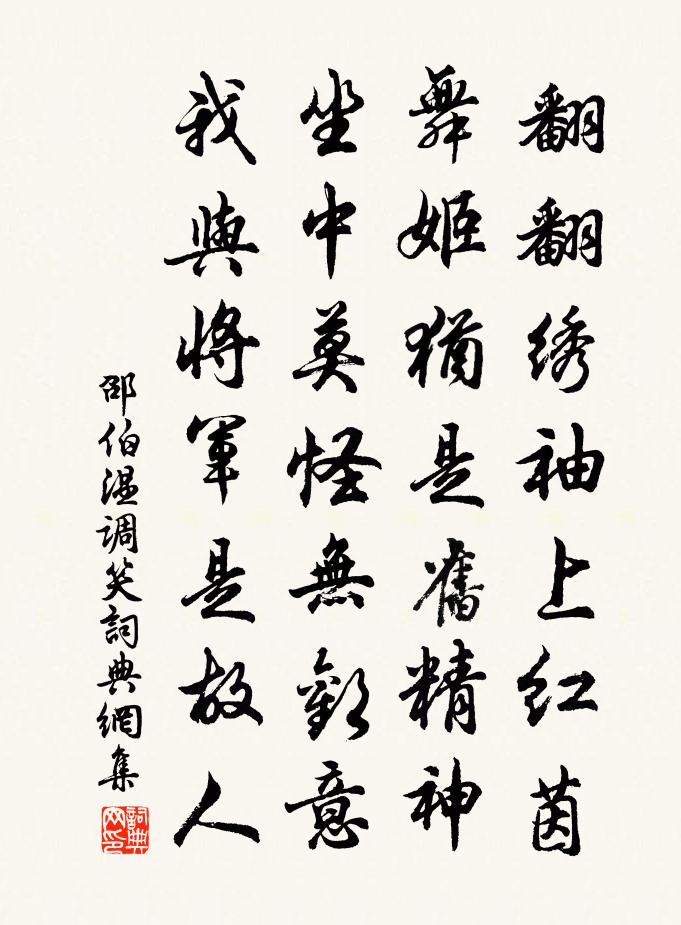 翻翻绣袖上红茵
舞姬猶是舊精神
坐中莫怪無歡意
我與將軍是故人
邵伯温調笑詞典網集
詞典網印